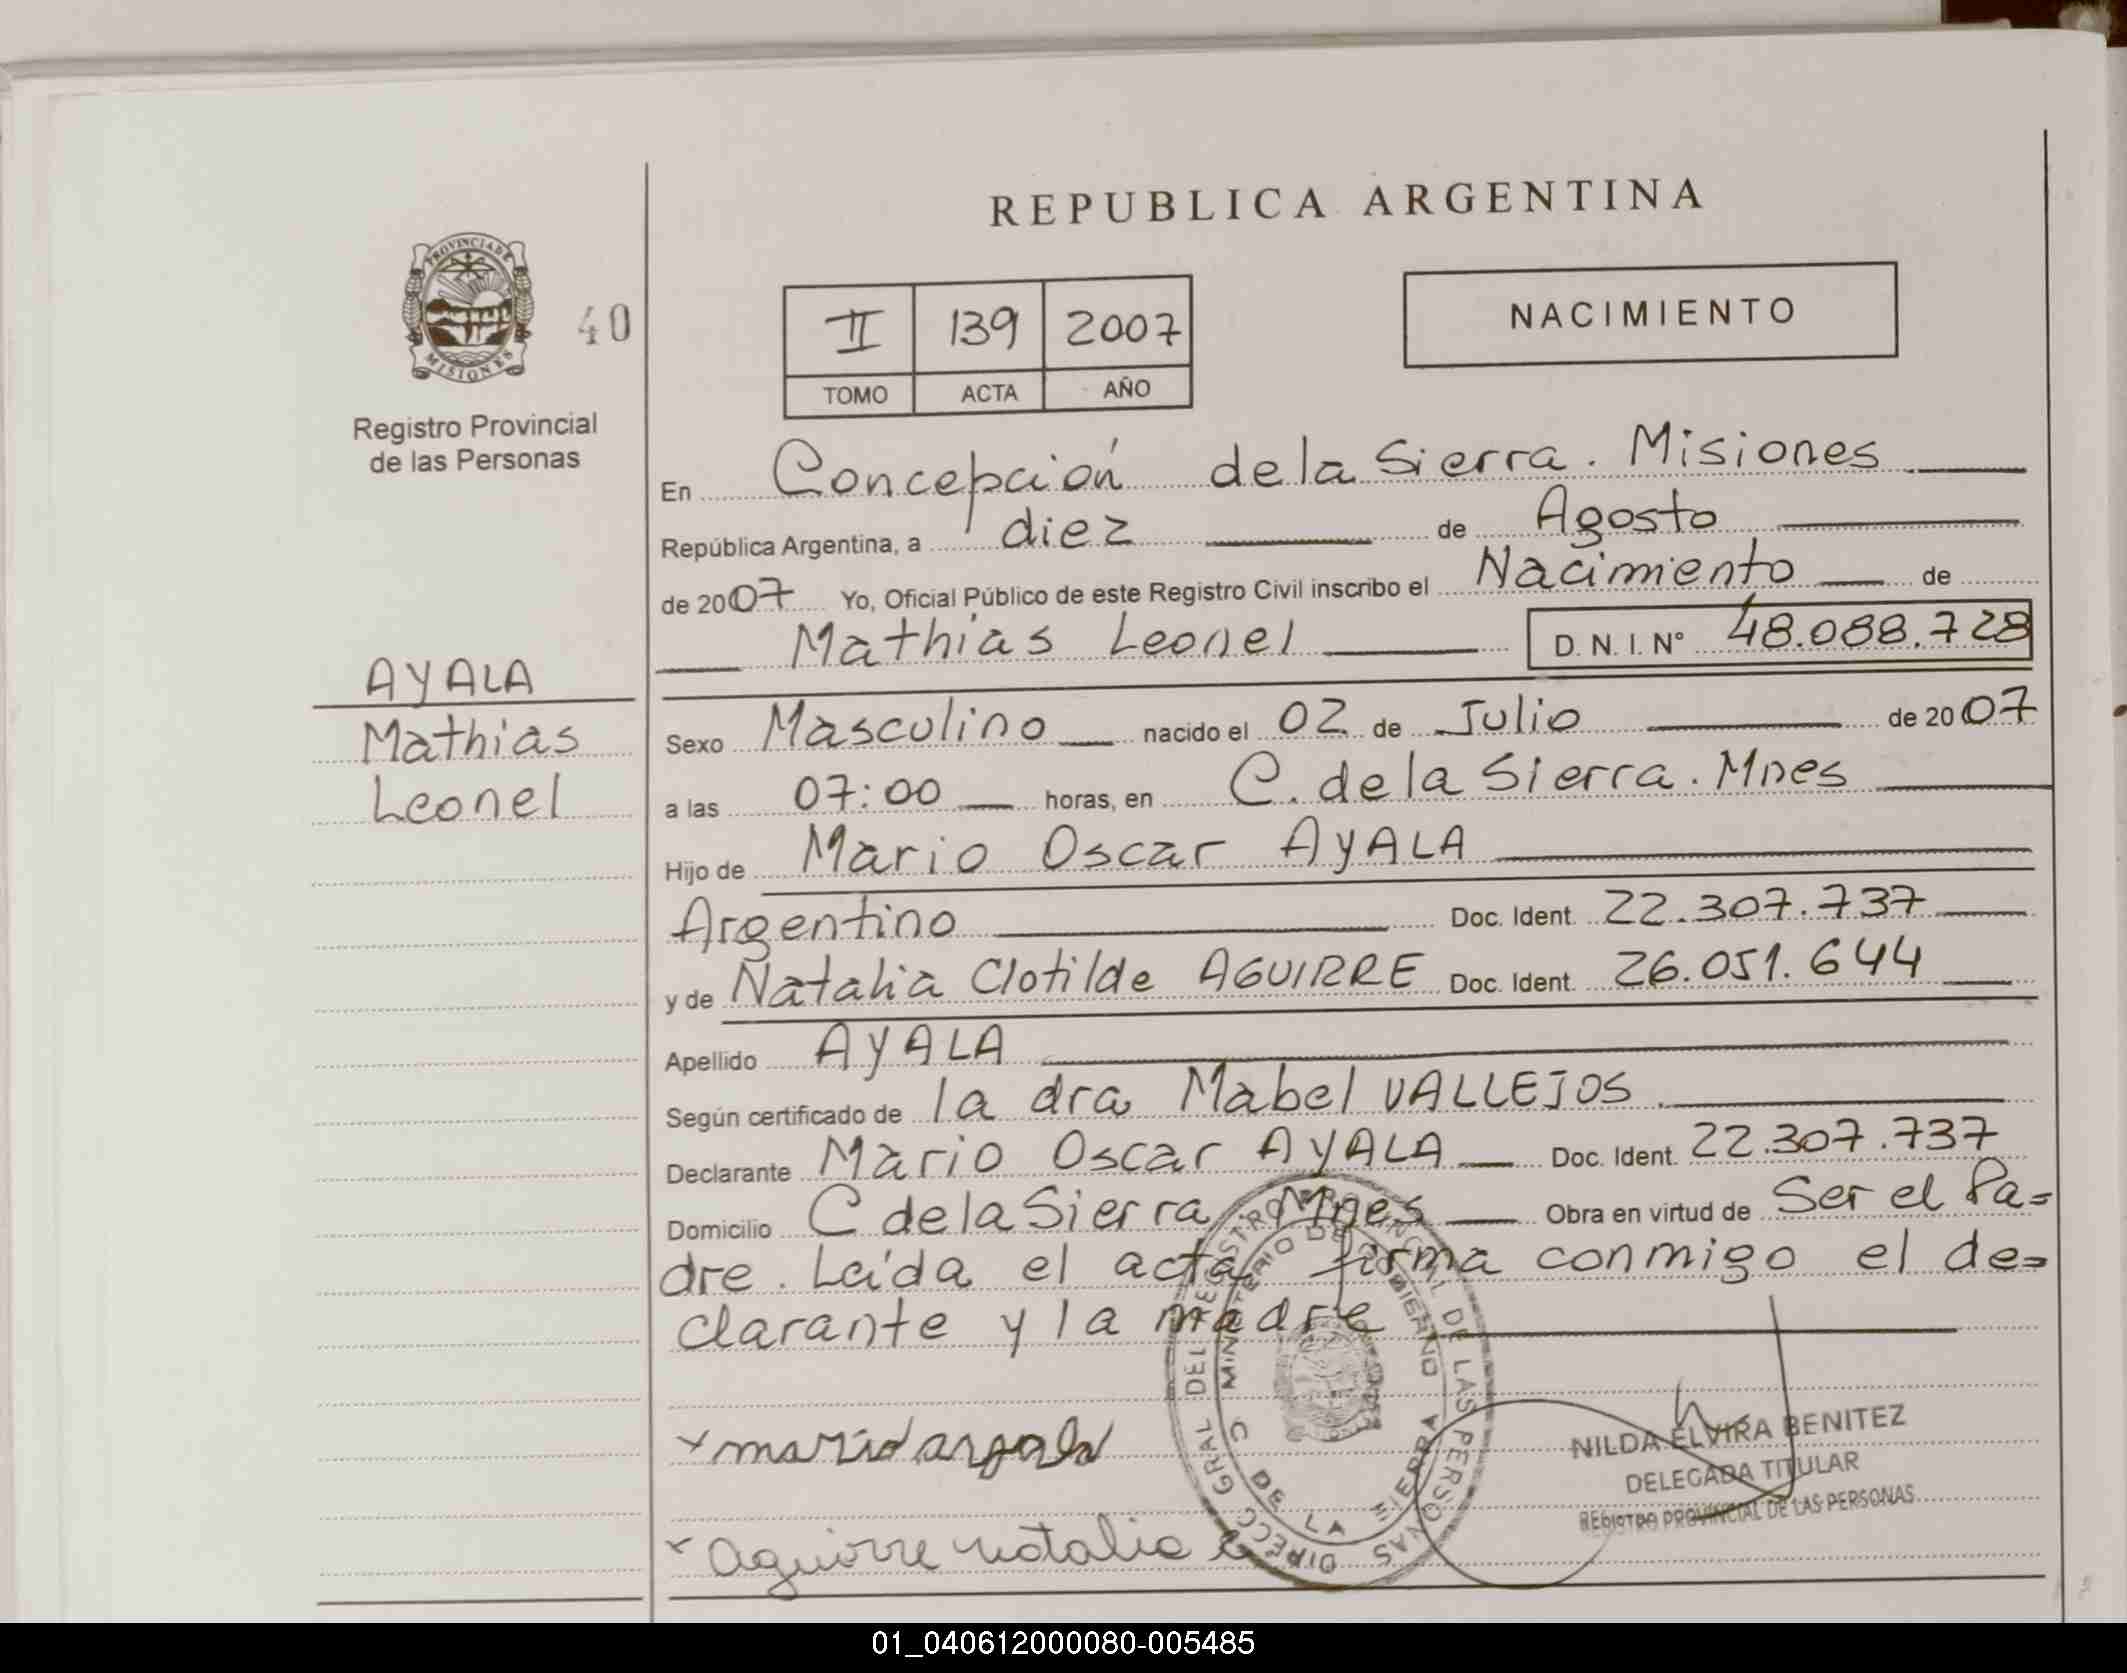 REPUBLICA ARGENTINA
PROVINCIA DE
MISIONES
40
Registro Provincial
de las Personas
II 139 2007
TOMO ACTA AÑO
NACIMIENTO
En Concepción de la Sierra. Misiones
República Argentina, a diez de Agosto
de 2007 Yo, Oficial Público de este Registro Civil inscribo el Nacimiento de
Mathias Leonel D. N. I. N° 48.088.728
AYALA
Mathias
Leonel
Sexo Masculino nacido el 02 de Julio de 2007
a las 07:00 horas, en C. de la Sierra. Mnes
Hijo de Mario Oscar AYALA
Argentino Doc. Ident. 22.307.737
y de Natalia Clotilde AGUIRRE Doc. Ident. 26.051.644
Apellido AYALA
Según certificado de la dra Mabel VALLEJOS
Declarante Mario Oscar AYALA Doc. Ident. 22.307.737
Domicilio C de la Sierra Mnes Obra en virtud de Ser el Pa=
dre. Leída el acta firma conmigo el de=
clarante y la madre
DIRECC GRAL DEL REGISTRO PROVINCIAL DE LAS PERSONAS
MINISTERIO DE GOBIERNO
C DE LA SIERRA
NILDA ELVIRA BENITEZ
DELEGADA TITULAR
REGISTRO PROVINCIAL DE LAS PERSONAS
x aguirre natalia c
01_040612000080-005485